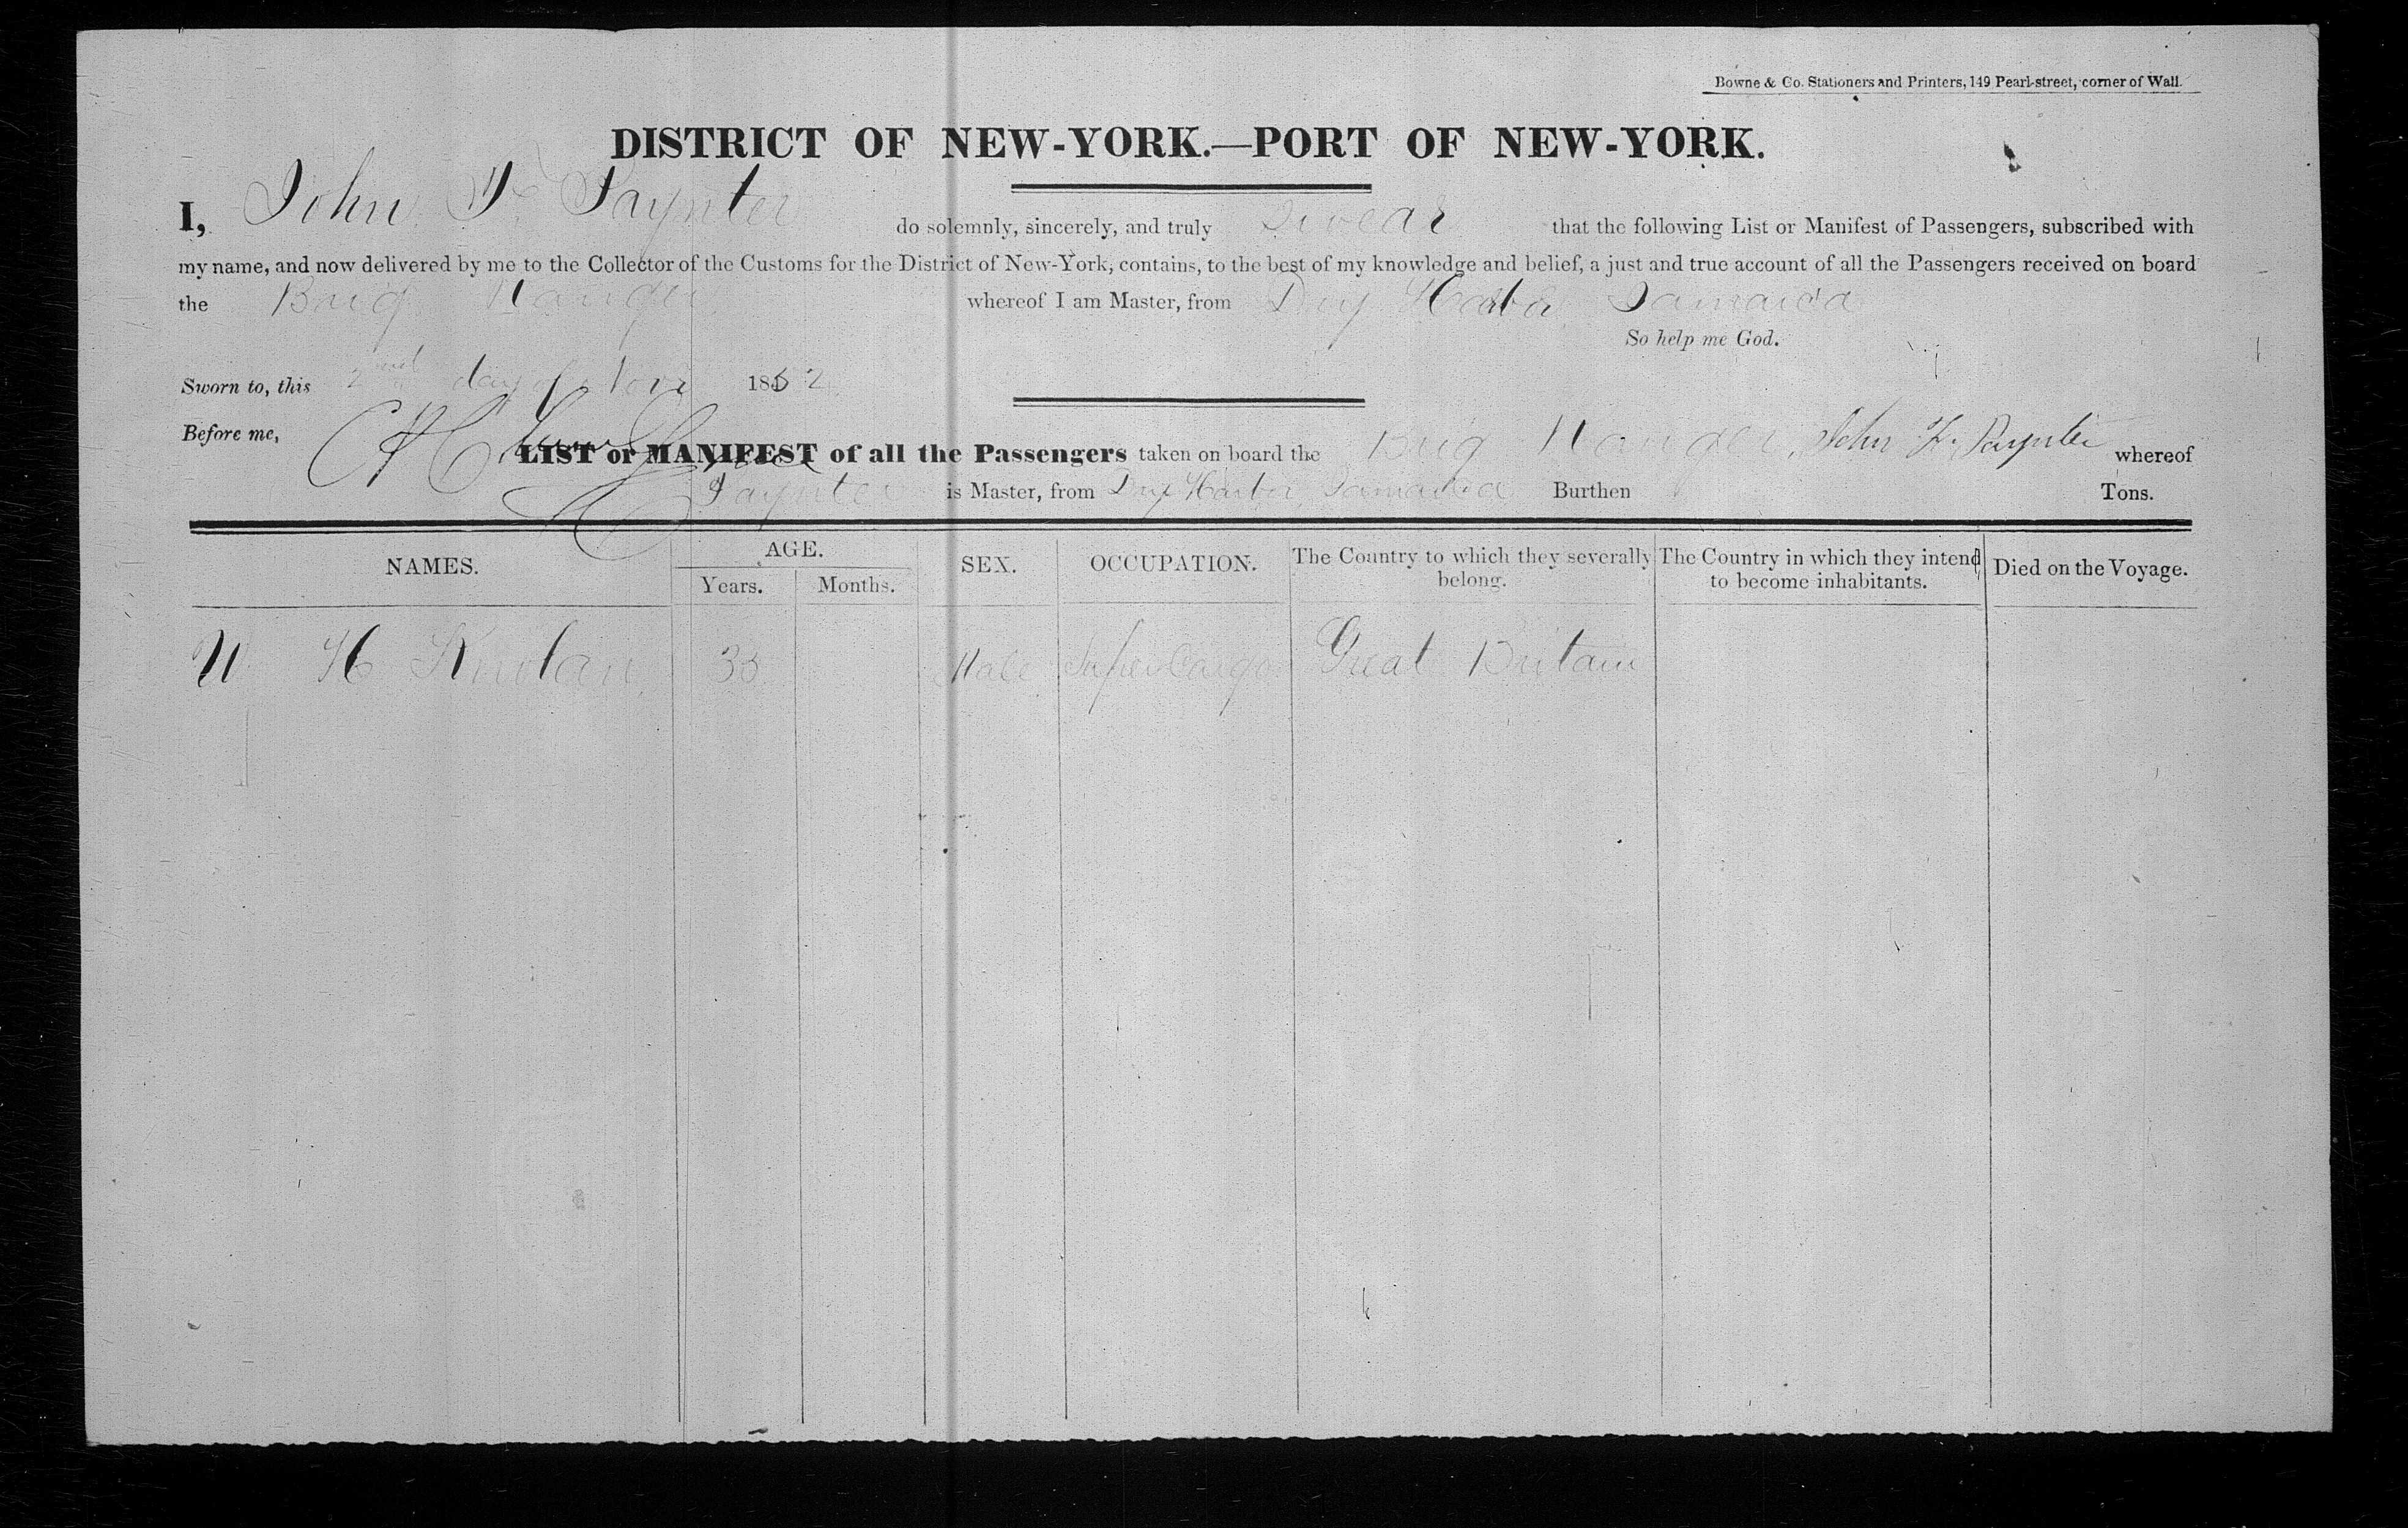 Bowne & Co. Stationers and Printers, 149 Pearl-street, corner of Wall.
DISTRICT OF NEW-YORK.—PORT OF NEW-YORK.
I, John F. Paynter do solemnly, sincerely, and truly swear that the following List or Manifest of Passengers, subscribed with
my name, and now delivered by me to the Collector of the Customs for the District of New-York, contains, to the best of my knowledge and belief, a just and true account of all the Passengers received on board
the Brig whereof I am Master, from Dry Harbor Jamaica
So help me God.
Sworn to, this 2nd day of Nov 1852
Before me,
LIST or MANIFEST of all the Passengers taken on board the Brig John F. Paynter whereof
Paynter is Master, from Dry Harbor Jamaica Burthen Tons.
NAMES. AGE. SEX. OCCUPATION. The Country to which they severally belong. The Country in which they intend to become inhabitants. Died on the Voyage.
Years. Months.
W H Male Super Cargo Great Britain